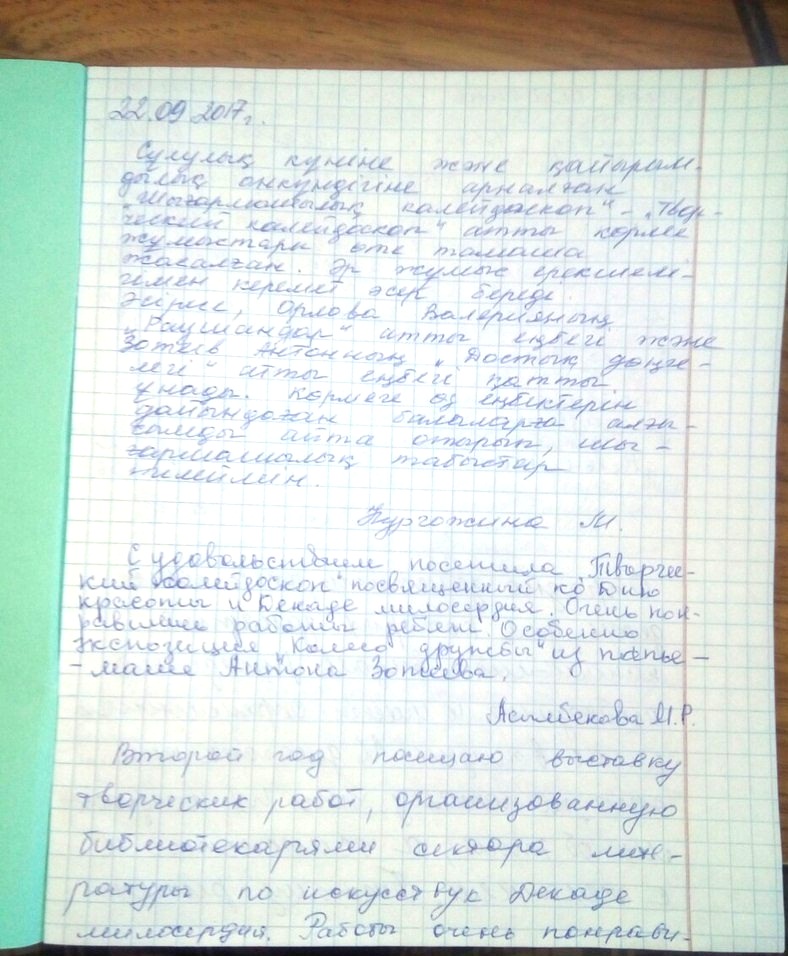 22.09 2017г.
Сұлулық күніне және қайырым-
дылық онкүндігіне арналған
"Шығармашылық калейдоскоп" - "Твор-
ческий калейдоскоп" атты көрме
жұмыстары өте тамаша
жасалған. Әр жұмыс ерекшелі-
гімен керемет әсер береді.
Әсірес, Орлова Валерияның
"Раушандар" атты еңбегі және
Зотеев Антонның "Достық дөңге-
легі" атты еңбегі қатты
ұнады. Көрмеге өз еңбектерін
дайындаған балаларға алғы-
сымды айта отырып, шы-
ғармашылық табыстар
тилеймін.
Нургожина М.
С удовольствием посетила "Творчес-
кий калейдоскоп" посвященный ко Дню
красоты и Декаде милосердия. Очень пон-
равились работы ребят. Особенно
экспозиция "Колесо дружбы" из папье-
- маше Антона Зотеева.
Асылбекова М.Р.
Второй год посещаю выставку
творческих работ, организованную
библиотекарями сектора лите-
ратуры по искусству к Декаде
милосердия. Работы очень понрави-